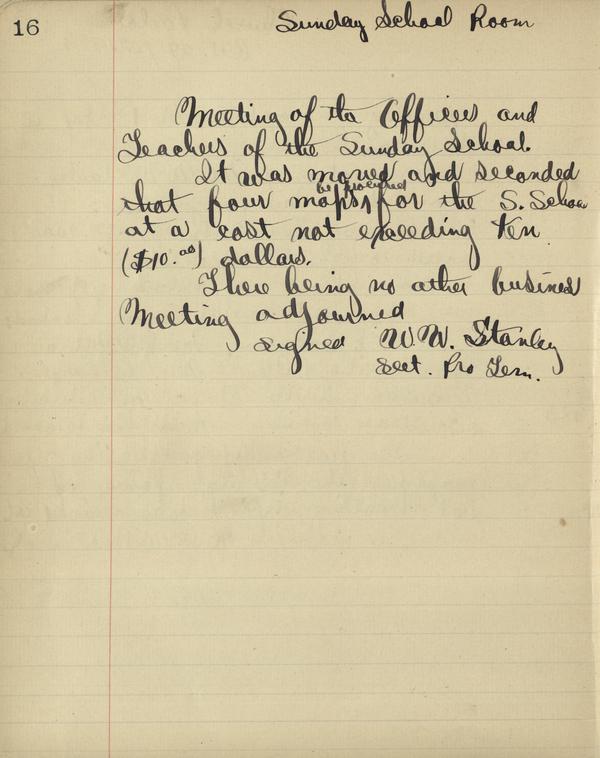 16
Sunday School Room
Meeting of the Officers and
Teachers of the Sunday School.
It was moved and seconded
be procured
that four maps for the S. School
at a cost not exceeding ten
($10.00) dollars.
There being no other business
Meeting adjourned
signed W.W. Stanley
Sect. Pro Tem.